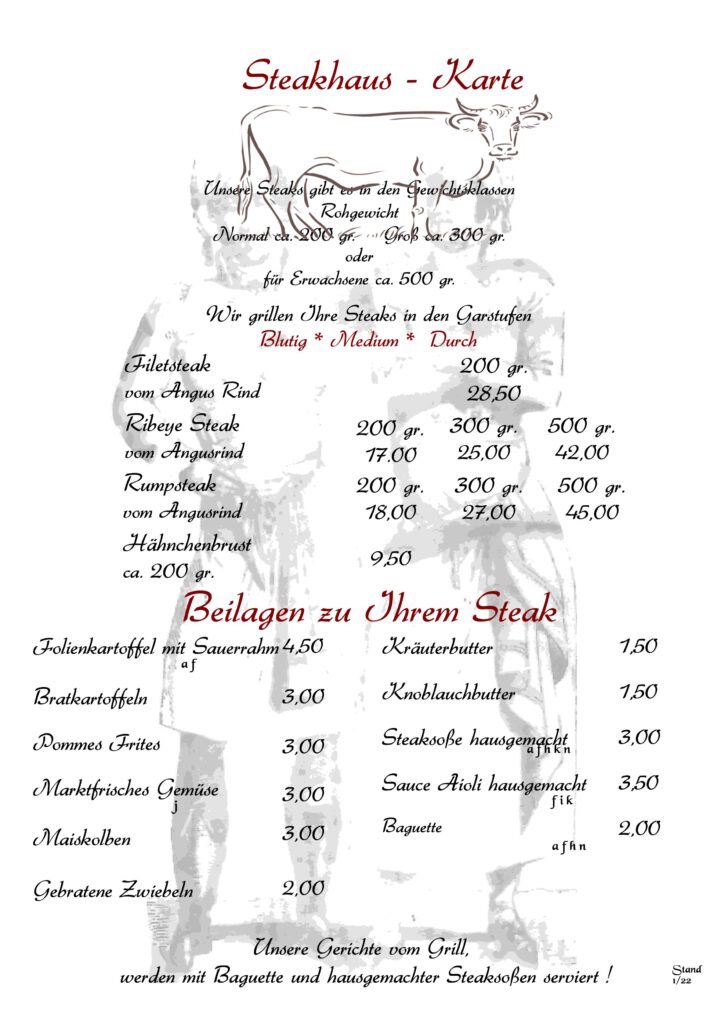 Steakhaus - Karte
Unsere Steaks gibt es in den Gewichtsklassen
Rohgewicht
Normal ca. 200 gr. Groß ca. 300 gr.
oder
für Erwachsene ca. 500 gr.
Wir grillen Ihre Steaks in den Garstufen
Blutig * Medium * Durch
Filetsteak 200 gr.
vom Angus Rind 28,50
Ribeye Steak 200 gr. 300 gr. 500 gr.
vom Angusrind 17.00 25,00 42,00
Rumpsteak 200 gr. 300 gr. 500 gr.
vom Angusrind 18,00 27,00 45,00
Hähnchenbrust 9,50
ca. 200 gr.
Beilagen zu Ihrem Steak
Folienkartoffel mit Sauerrahm 4,50
a f
Bratkartoffeln 3,00
Pommes Frites 3,00
Marktfrisches Gemüse 3,00
j
Maiskolben 3,00
Gebratene Zwiebeln 2,00
Kräuterbutter 1,50
Knoblauchbutter 1,50
Steaksoße hausgemacht 3,00
a f h k n
Sauce Aioli hausgemacht 3,50
f i k
Baguette 2,00
a f h n
Unsere Gerichte vom Grill,
werden mit Baguette und hausgemachter Steaksoßen serviert !
Stand
1/22